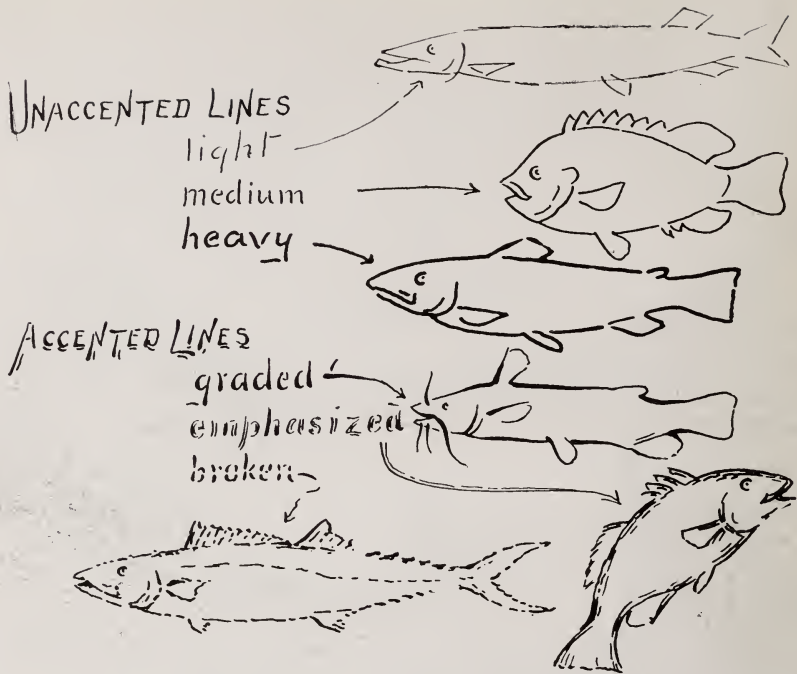 UNACCENTED LINES
light
medium
heavy
ACCENTED LINES
graded
emphasized
broken